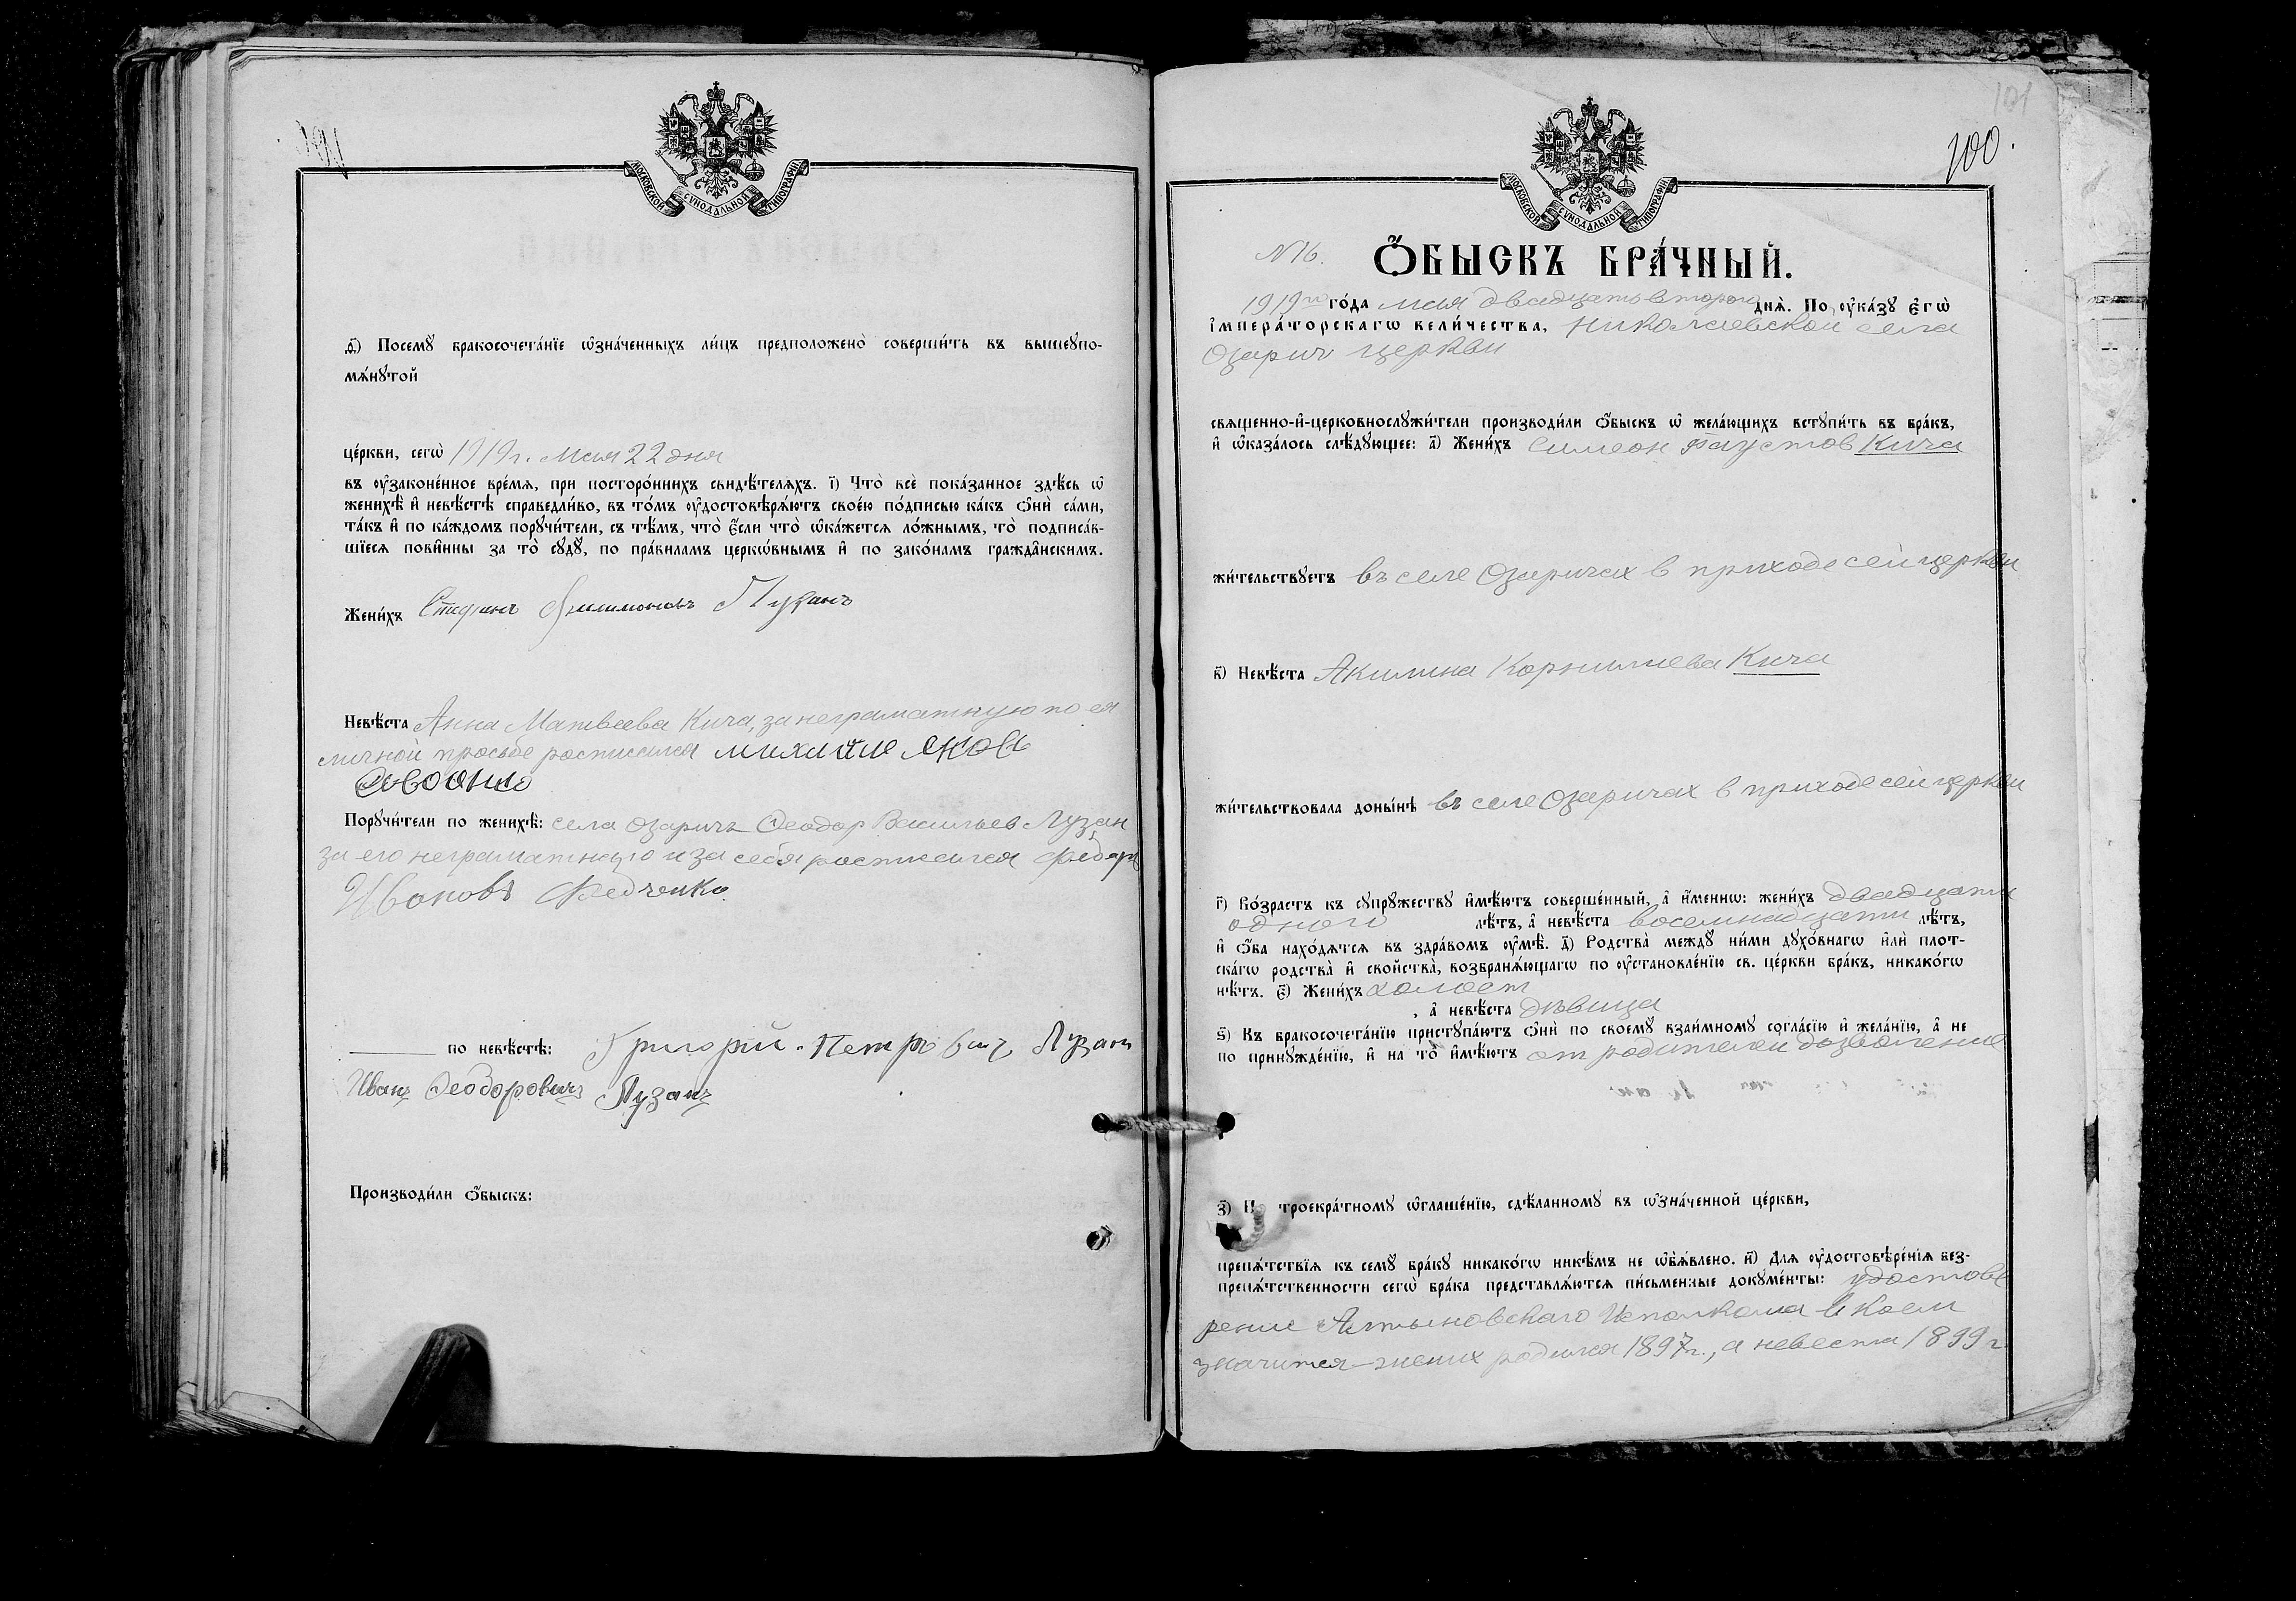 МОСКОВСКОЙ СѴНОДАЛЬНОЙ ТИПОГРАФІИ
ѳ҃) Посемꙋ̀ бракосочета́нїе ѡ҆зна́ченныхъ ли́цъ предположено̀ соверши́ть въ вышеꙋпо-
мѧ́нꙋтой
це́ркви, сегѡ̀ 1919 г. Мая 22 дня
въ ᲂу҆законе́нное вре́мѧ, при посторо́ннихъ свидѣ́телѧхъ. і҃) Что̀ всѐ пока́занное здѣ́сь ѡ҆
женихѣ̀ и҆ невѣ́стѣ справедли́во, въ то́мъ ᲂу҆достовѣрѧ́ютъ свое́ю по́дписью ка́къ ѻ҆нѝ са́ми,
та́къ и҆ по ка́ждомъ порꙋчи́тели, съ тѣ́мъ, что̀ є҆́сли что̀ ѡ҆ка́жется ло́жнымъ, то̀ подписа́в-
шїеся пови́нны за то̀ сꙋдꙋ̀, по пра́виламъ церко́внымъ и҆ по зако́намъ гражда́нскимъ.
Жени́хъ Стефанъ Филимоновъ Пузанъ
Невѣ́ста Анна Матвеева Кича, за неграматную по ея
личной просьбе росписался
Порꙋчи́тели по женихѣ̀: села Озаричъ Феодор Васильев Лузан
за его неграматнаго и за себя росписался Федоръ
Ивановъ Федченко.
по невѣ́стѣ: Григорий Петровичъ Лузанъ
Иванъ Феодоровичъ Лузанъ
Производи́ли ѻ҆́быскъ:
101
100.
МОСКОВСКОЙ СѴНОДАЛЬНОЙ ТИПОГРАФІИ
N 16.
Ѻ҆́БЫСКЪ БРА́ЧНЫЙ.
1919го го́да мая двадцать второго днѧ̀. По ᲂу҆ка́зꙋ Є҆гѡ̀
і҆мпера́торскагѡ вели́чества, Николаевской села
Озарич церкви
свѧще́нно-и҆-церковнослꙋжи́тели производи́ли ѻ҆́быскъ ѡ҆ жела́ющихъ встꙋпи́ть въ бра́къ,
и҆ ѡ҆каза́лось слѣ́дꙋющее: а҃) Жени́хъ Симеон Фаустов Кича
жи́тельствꙋетъ въ селе Озаричах в приходе сей церкви
в҃) Невѣ́ста Акилина Корнилиева Кича
жи́тельствовала доны́нѣ въ селе Озаричах в приходе сей церкви
г҃) Во́зрастъ къ сꙋпрꙋ́жествꙋ и҆мѣ́ютъ соверше́нный, а҆ и҆́меннѡ: жени́хъ двадцати
одного лѣ́тъ, а҆ невѣ́ста восемнадцати лѣ́тъ,
и҆ ѻ҆́ба нахо́дѧтсѧ въ здра́вомъ ᲂу҆мѣ̀. д҃) Родства̀ междꙋ̀ ни́ми дꙋхо́внагѡ и҆лѝ плот-
ска́гѡ родства̀ и҆ свойства̀, возбранѧ́ющагѡ по ᲂу҆становле́нїю св. це́ркви бра́къ, никако́гѡ
нѣ́тъ. є҃) Жени́хъ холост
, а҆ невѣ́ста дѣвица
ѕ҃) Къ бракосочета́нїю пристꙋпа́ютъ ѻ҆нѝ по своемꙋ̀ взаи́мномꙋ согла́сїю и҆ жела́нїю, а҆ не
по принꙋжде́нїю, и҆ на то̀ и҆мѣ́ютъ от родителей дозволение
з҃) троекра́тномꙋ ѡ҆глаше́нїю, сдѣ́ланномꙋ въ ѡ҆зна́ченной це́ркви,
препѧ́тствїѧ къ семꙋ̀ бра́кꙋ никако́гѡ никѣ́мъ не ѡ҆б̾ѧ́влено. и҃) Длѧ ᲂу҆достовѣре́нїѧ без-
препѧ́тственности сегѡ̀ бра́ка представлѧ́ютсѧ пи́сьменные докꙋме́нты: удостове
рение Алтыновскаго Исполкома в коем
значится жених родился 1897 г., а невеста 1899 г